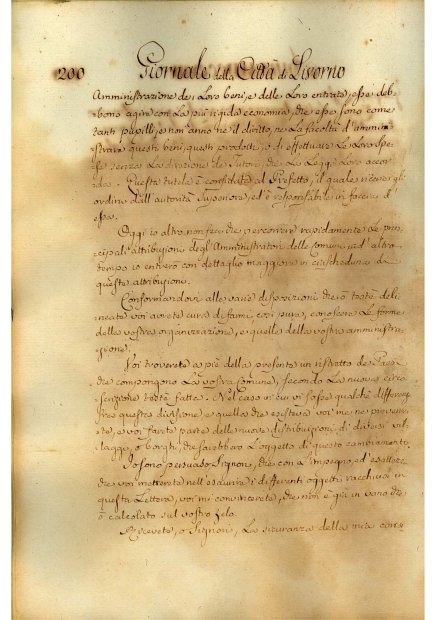 200 Giornale della Città di Livorno
Amministrazione dei Loro beni, e delle Loro entrate, esse deb-
bono agire con La più rigida economia, che esse sono come
tanti pupilli, e non anno ne il diritto, ne La facoltà d'ammini-
strare questi beni, questi prodotti, e di effettuare Le Loro spe-
se senza La direzione de Tutori, che La Legge Loro accor-
da. Questa tutela è confidata al Prefetto, il quale riceve gli
ordini dall'autorità Superiore, ed è responsabile in faccia di
essa.
Oggi io altro non feci che percorrere rapidamente Le prin-
cipali attribuzioni degl'Amministratori delle Comuni; ad altro
tempo io entrerò con dettaglio maggiore in ciascheduna di
queste attribuzioni.
Conformandovi alle varie disposizioni che io tosto deli-
neate voi avrete cura di farmi così pure, conoscere Le forme
della vostra organizzazione, e quelle della vostra amministra-
zione.
Voi troverete a piè della presente un ristretto de Paesi
che compongono La vostra Comune, secondo La nuova circo-
scrizione testè fatta. Nel caso in cui vi fosse qualche differen-
za fra questa divisione, e quella che esisteva voi me ne preverre-
te, e voi farete parte delle nuove distribuzioni di diversi vil-
laggi, o borghi, che sarebbero L'oggetto di questo cambiamento.
Io sono persuaso Signori, che con L'impegno, ed esattezza
che voi metterete nell'eseguire i differenti oggetti racchiusi in
questa Lettera, voi mi convincerete, che non è già in vano che
ò calcolato sul vostro zelo.
Ricevete, o Signori, La sicuranza della mia consi-